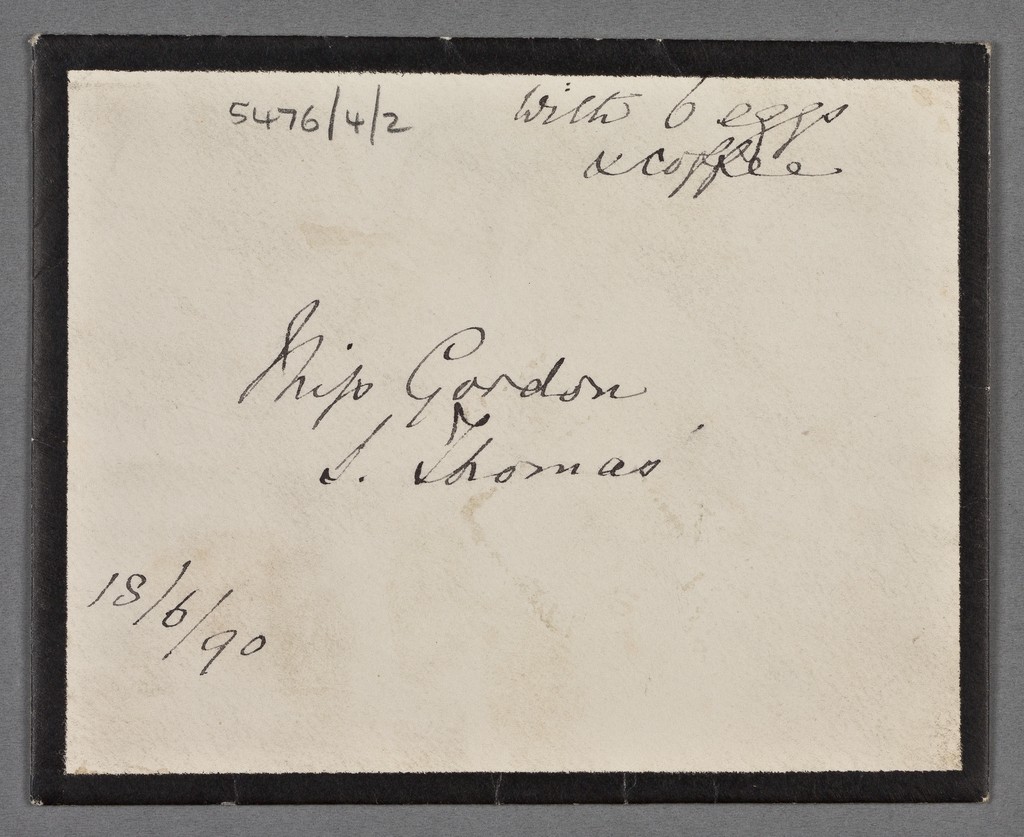 5476/4/2
With 6 eggs
& coffee
Miss Gordon
S. Thomas'
18/6/90